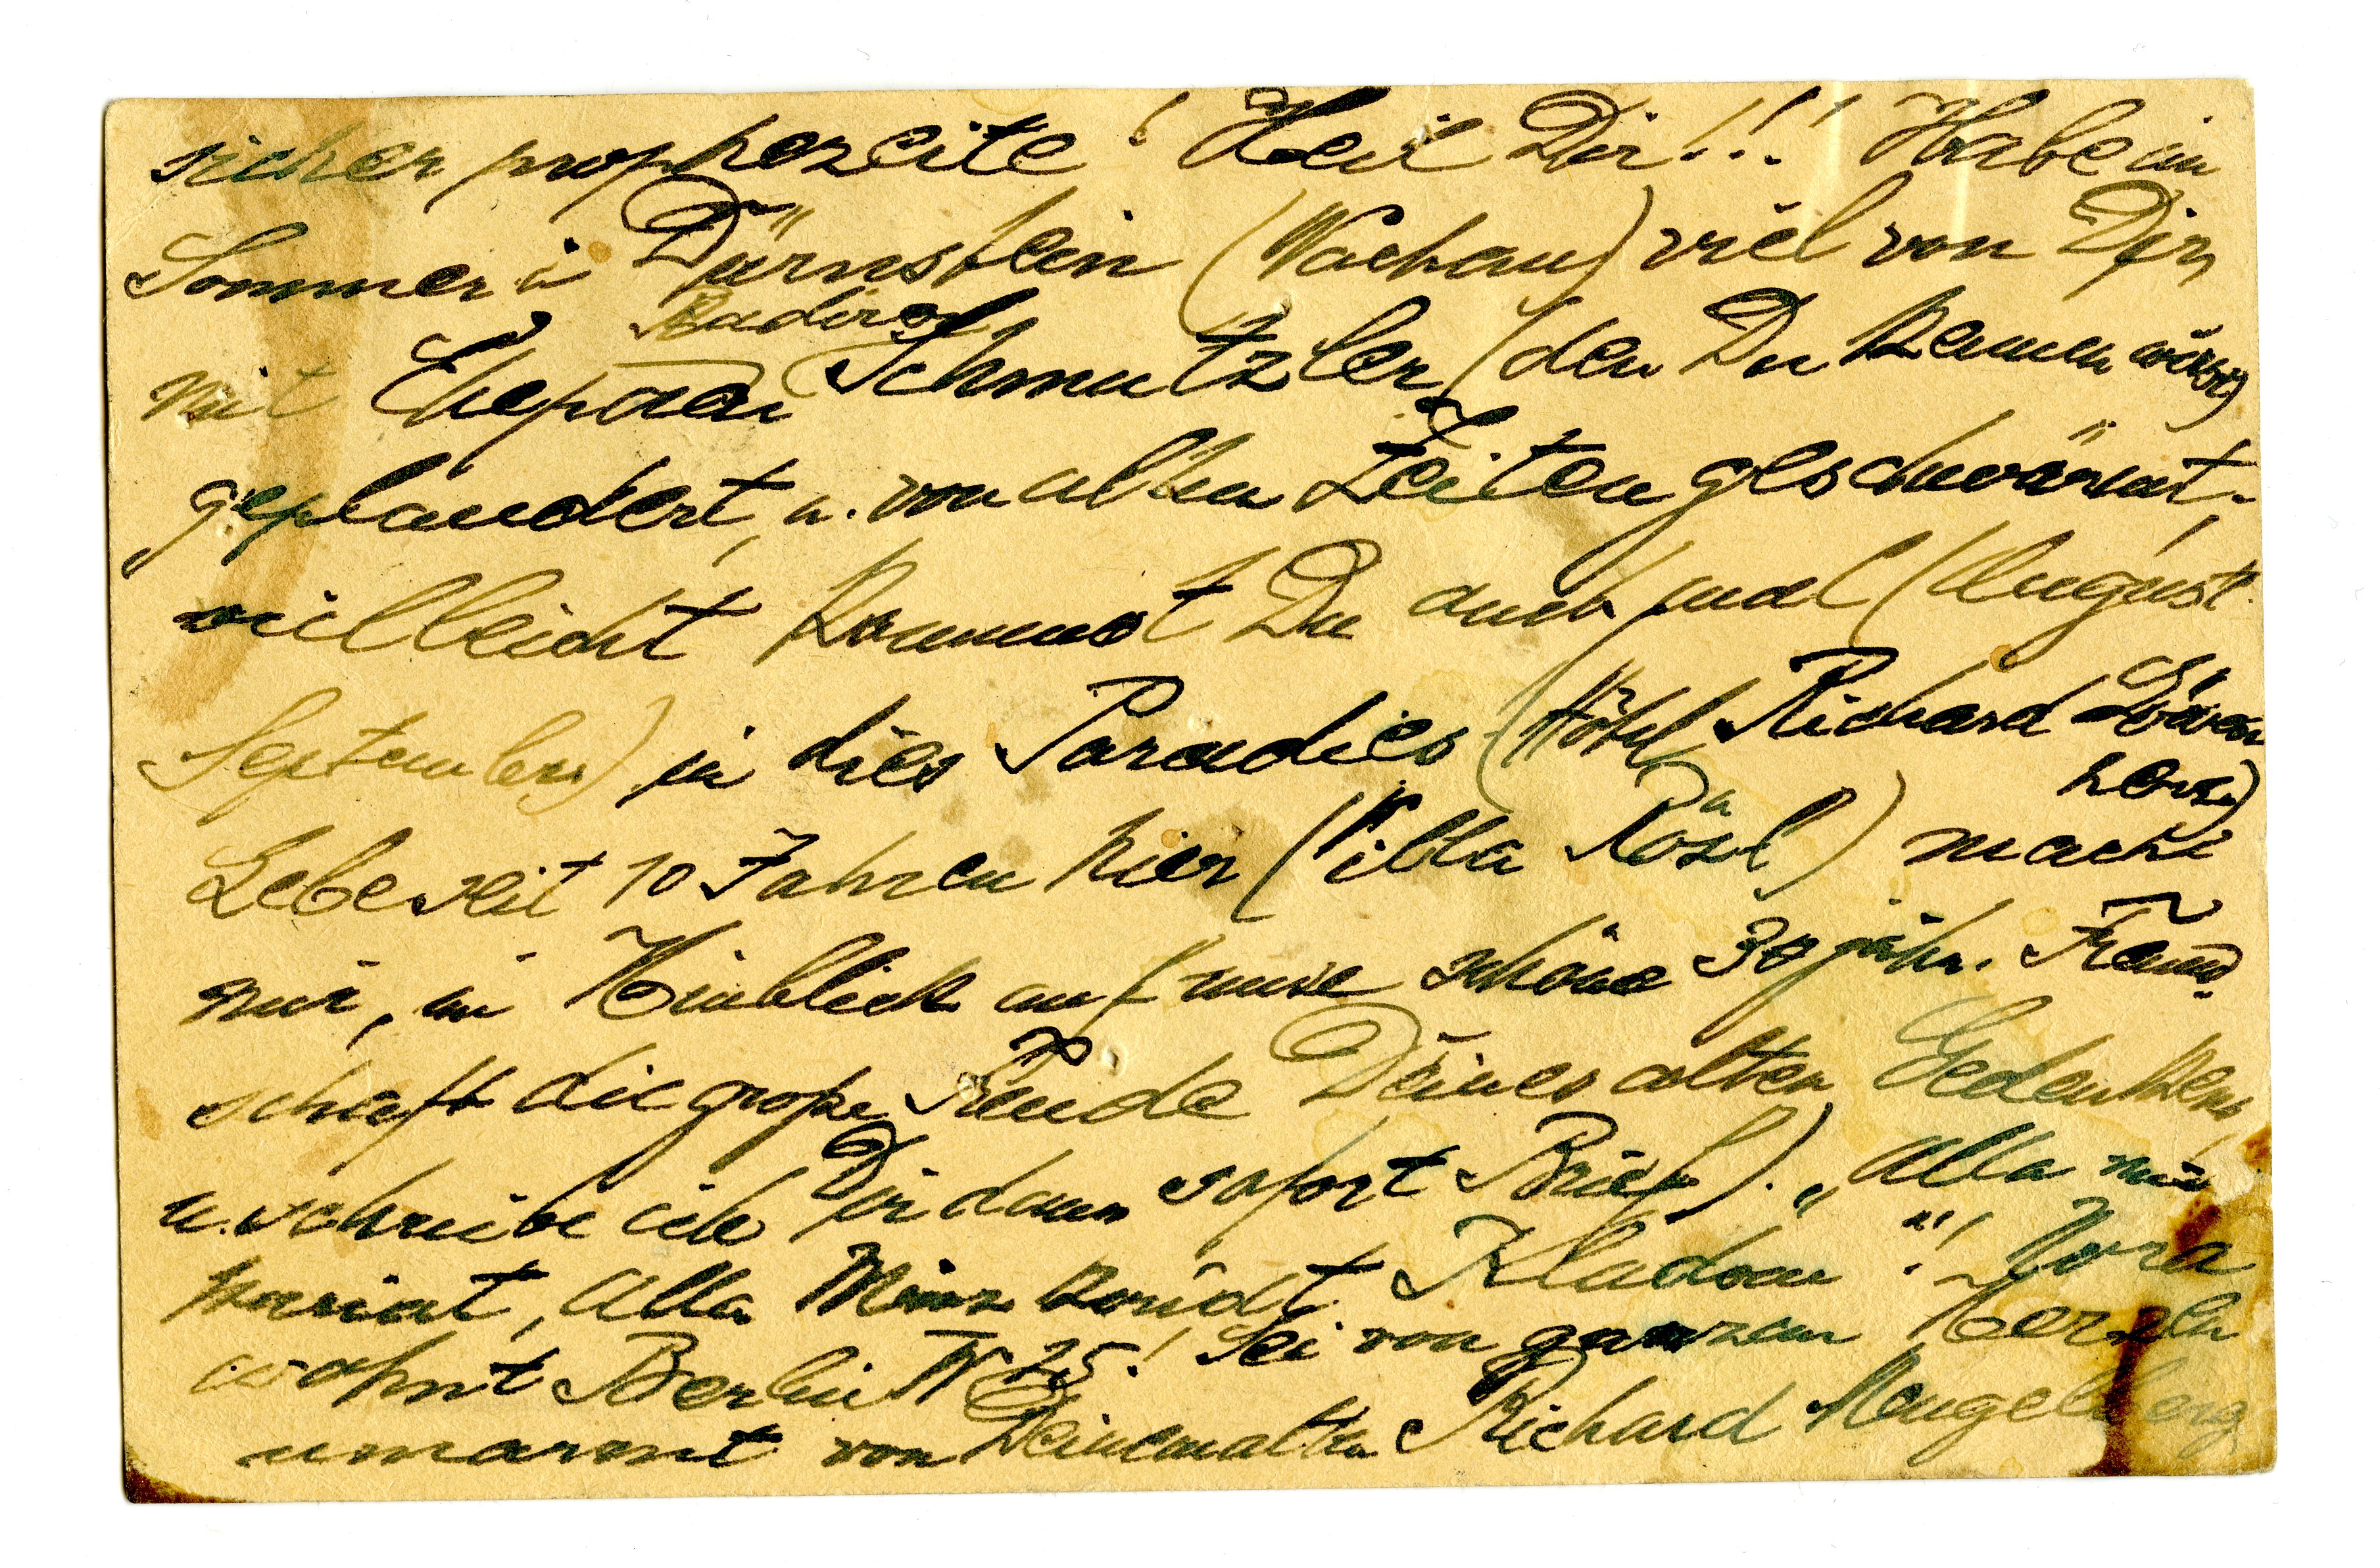 sicher prophezeite! Heil Dir!!! Habe im
Sommer i Dürnstein (Wachau) viel von Dir
Radirer
mit Ehepaar Schmutzler (den Du kennen wirst)
geplaudert, u. von alten Zeiten geschwärmt,
vielleicht kommst Du auch mal (August
September) in dies Paradies (Hôtel Richard Löwen
herz)
Lebe seit 10 Jahren hier (Villa Rösl) mache
mir, im Hinblick auf unse schöne 30 jähr. Freund
schaft die große Freude Deines alten Gedenkens,
u. schreibe ich Dir dann sofort Brief). "Alla
Alla Kladow"! Nora
wohnt Berlin W 25! Sei von ganzem Herzen
umarmt von Deinem alten Richard Mengelberg